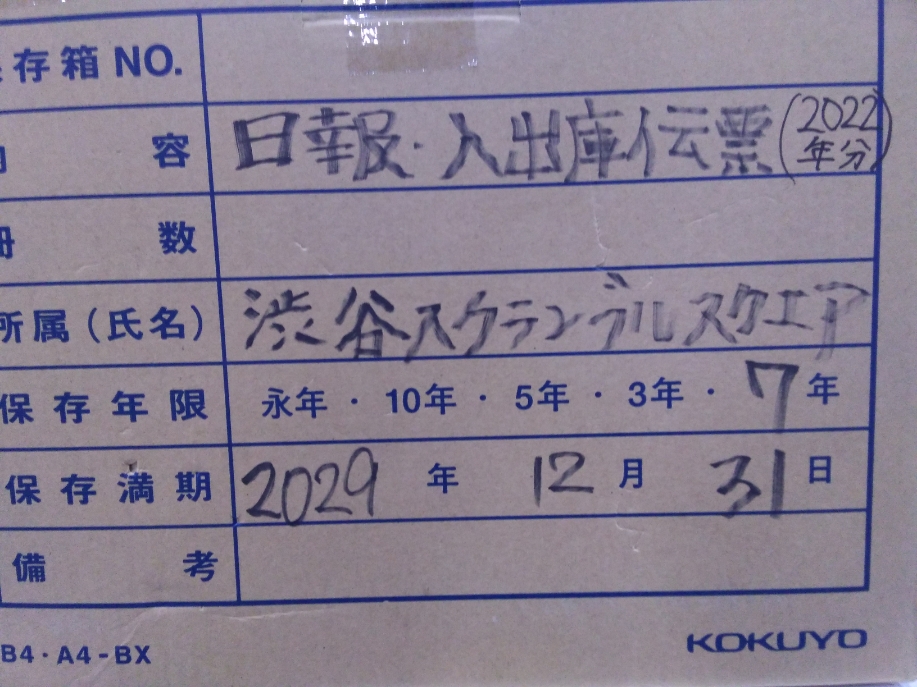 存箱 NO.
容 日報・入出庫伝票(2022年分)
数
所属(氏名) 渋谷スクランブルスクエア
保存年限 永年・10年・5年・3年・7年
保存満期 2029年12月31日
備考
B4・A4-BX KOKUYO